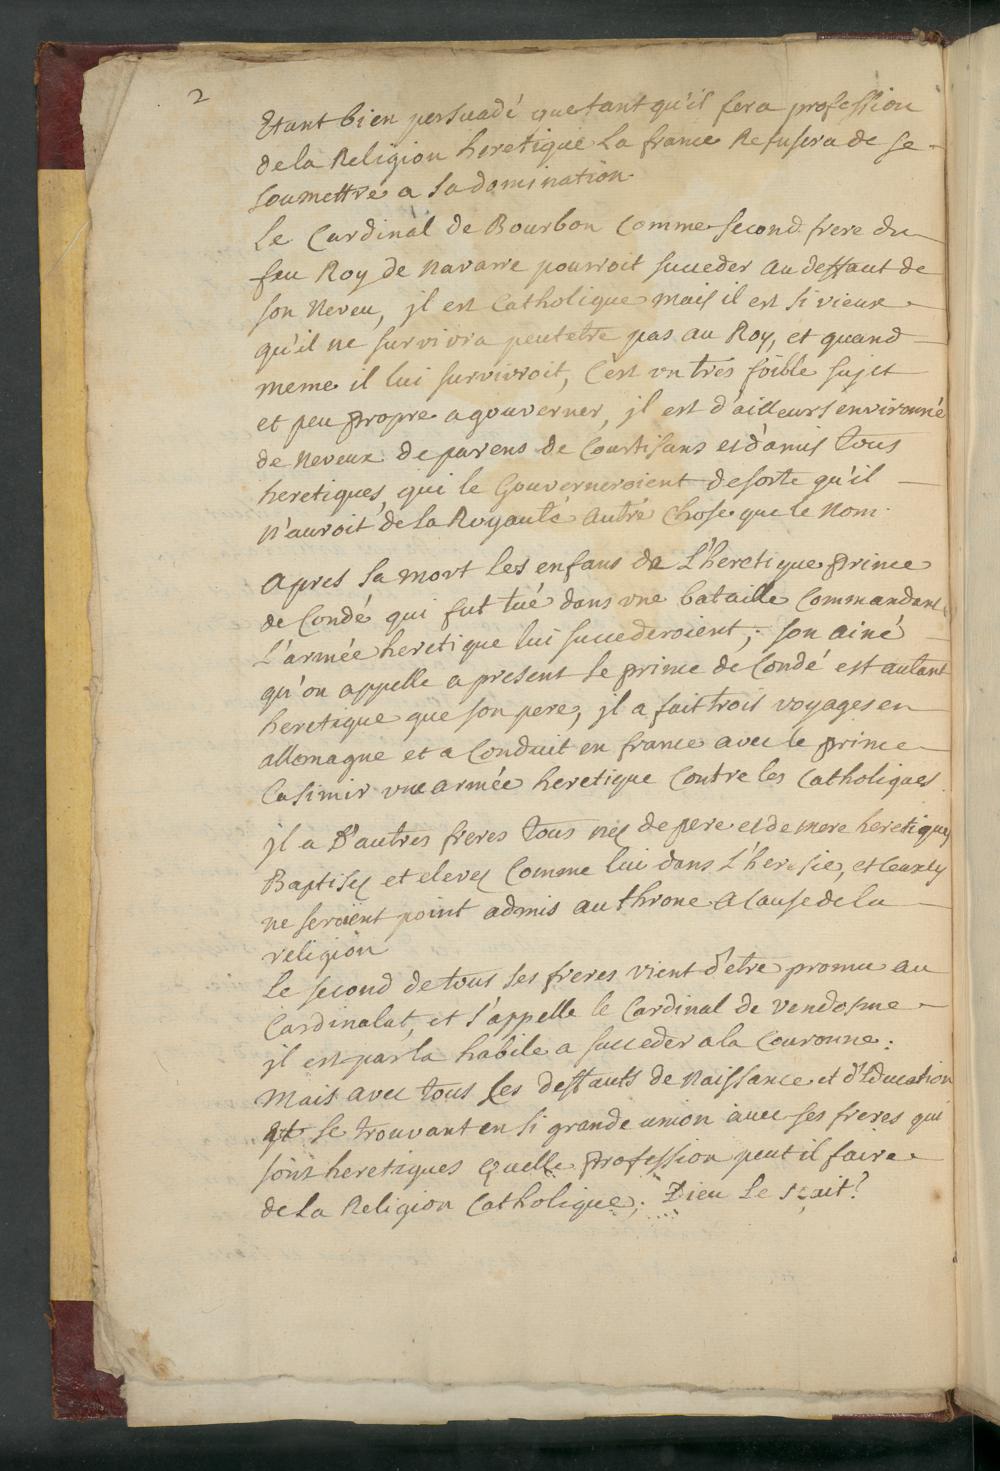 2
Etant bien persuadé que tant qu'il fera profession
de la Religion heretique La france Refusera de se
soumettre a sa domination.
Le Cardinal de Bourbon Comme second frere du
feu Roy de Navarre pourroit succeder au deffaut de
son Neveu, jl est Catholique mais il est si vieux
qu'il ne survivra peutetre pas au Roy, et quand
meme il lui survivroit, C'est vn tres foible sujet
et peu propre a gouverner, jl est d'ailleurs environné
de Neveux de parens de Courtisans et d'amis tous
heretiques, qui le Gouverneroient de sorte qu'il
N'auroit de la Royauté autre Chose que le Nom.
Apres sa mort les enfans de L'heretique prince
de Condé qui fut tué dans vne bataille Commandant
L'armée heretique lui succederoient; son ainé
qu'on appelle a present le prince de Condé est autant
heretique que son pere, jl a fait trois voyages en
allemagne et a Conduit en france avec le prince
Casimir vne armée heretique Contre les Catholiques.
jl a D'autres freres tous nez de pere et de mere heretiques
Baptisez et elevez Comme lui dans L'heresie, et Ceuxcy
ne seroient point admis au throne a Cause de la
religion
Le second de tous ses freres vient d'etre promu au
Cardinalat, et s'appelle le Cardinal de Vendosme
jl est par la habile a succeder a la Couronne:
Mais avec tous les deffauts de Naissance et d'Education
et se trouvant en si grande union avec ses freres qui
sont heretiques Quelle profession peut il faire
de La Religion Catholique; Dieu Le sçait?